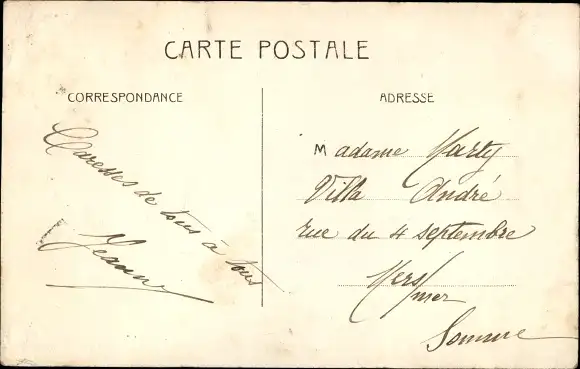 CARTE POSTALE
CORRESPONDANCE
Caresses de tous à tous
Jeanne
ADRESSE
Madame Marty
Villa André
rue du 4 septembre
Mers
/mer
Somme